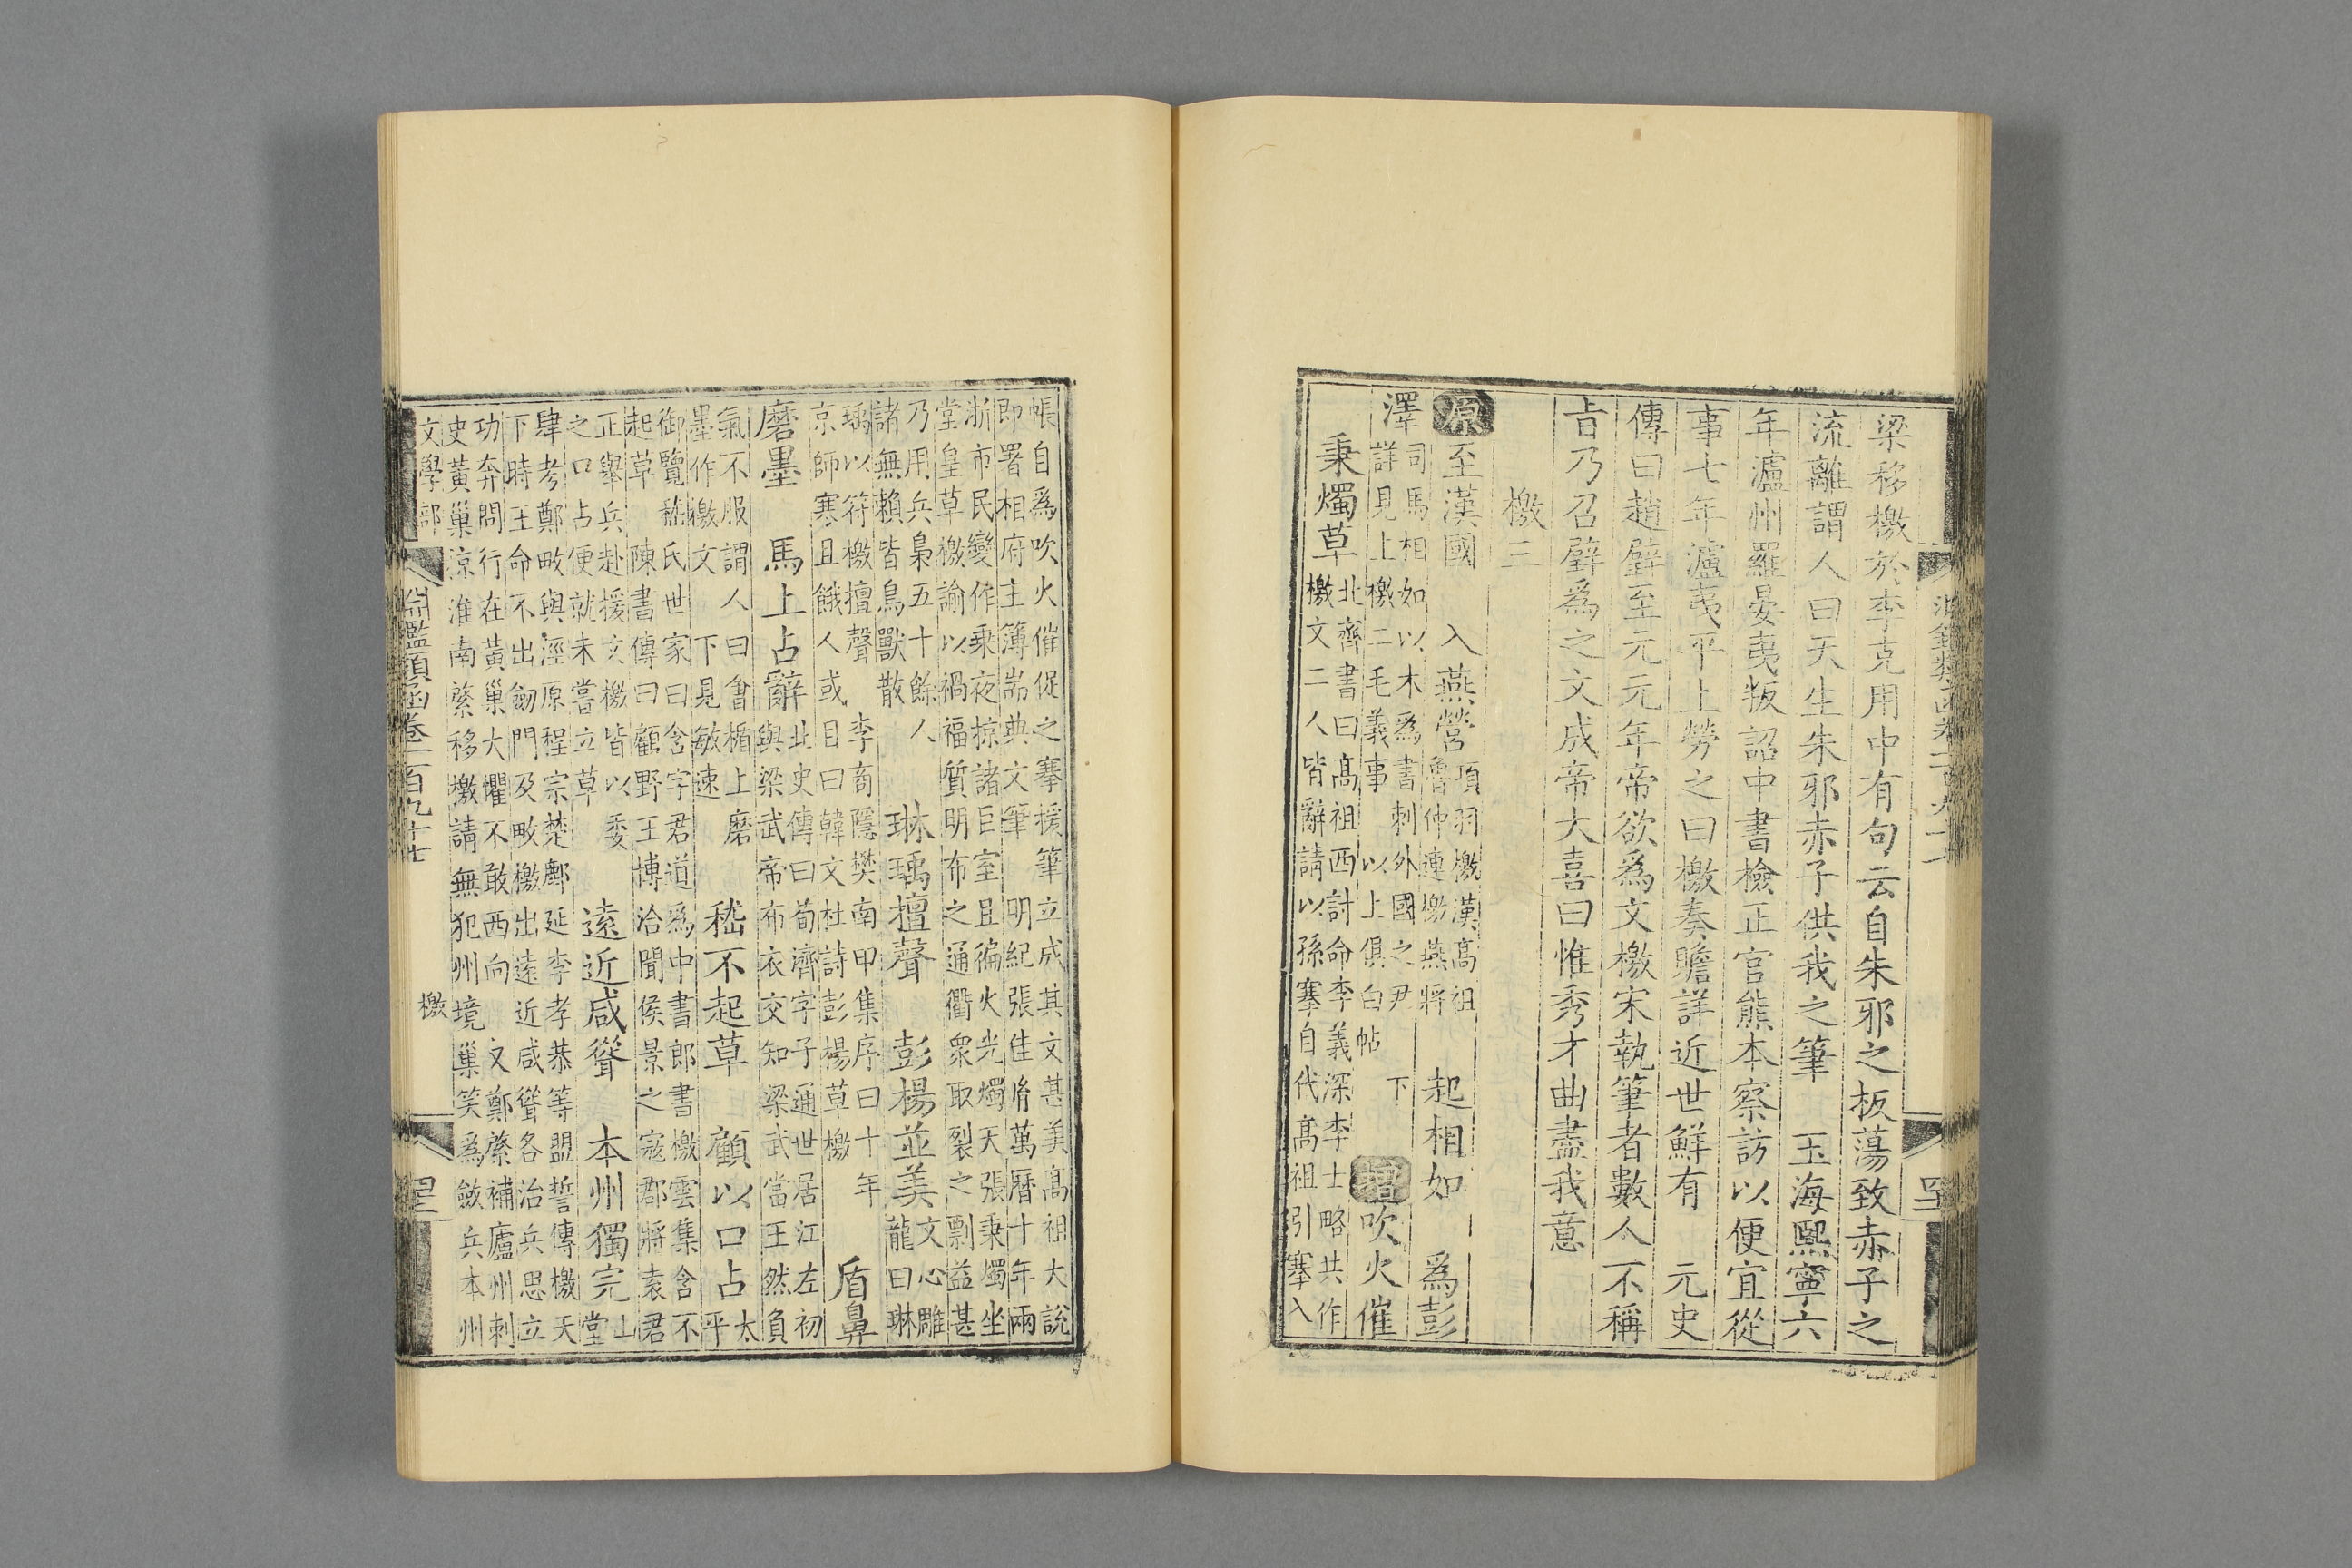 梁移檄於李克用中有句云自朱邪之板蕩致赤子之
流離謂人曰天生朱邪赤子供我之筆　玉海熙寧六
年瀘州羅晏夷叛詔中書檢正官熊本察訪以便宜從
事七年瀘夷平上勞之曰檄奏贍詳近世鮮有　元史
傳曰趙璧至元元年帝欲爲文檄宋執筆者數人不稱
旨乃召璧爲之文成帝大喜曰惟秀才曲盡我意
檄三
原至漢國　入燕營
項羽檄漢高祖
魯仲連檄燕將
起相如　爲彭
澤
司馬相如以木爲書刺外國之尹　下
詳見上檄二毛義事　以上俱白帖
增吹火催
秉燭草
北齊書曰高祖西討命李義深李士略共作
檄文二人皆辭請以孫搴自代高祖引搴入
帳自爲吹火催促之搴援筆立成其文甚美高祖大說
即署相府主簿耑典文筆　明紀張佳胤萬曆十年兩
浙市民變作乘夜掠諸巨室且徧火光燭天張秉燭坐
堂皇草檄諭以禍福質明布之通衢衆取裂之剽益甚
乃用兵梟五十餘人
諸無賴皆鳥獸散
琳瑀擅聲　彭楊並美
文心雕
龍曰琳
瑀以符檄擅聲　李商隱樊南甲集序曰十年
京師寒且餓人或目曰韓文杜詩彭楊草檄
盾鼻
磨墨　馬上占辭
北史傳曰荀濟字子通世居江左初
與梁武帝布衣交知梁武當王然負
氣不服謂人曰會楯上磨
墨作檄文　下見敏速
嵇不起草　顧以口占
太
平
御覽嵇氏世家曰含字君道爲中書郎書檄雲集含不
起草　陳書傳曰顧野王博洽聞侯景之寇郡將袁君
正舉兵赴援文檄皆以委
之口占便就未嘗立草
遠近咸聳　本州獨完
山
堂
肆考鄭畋與涇原程宗楚鄜延李孝恭等盟誓傳檄天
下時王命不出劒門及畋檄出遠近咸聳各治兵思立
功奔問行在黃巢大懼不敢西向　又鄭綮補廬州刺
史黃巢涼淮南綮移檄請無犯州境巢笑爲斂兵本州
文學部　檄
淵鑑類函卷一百九十七